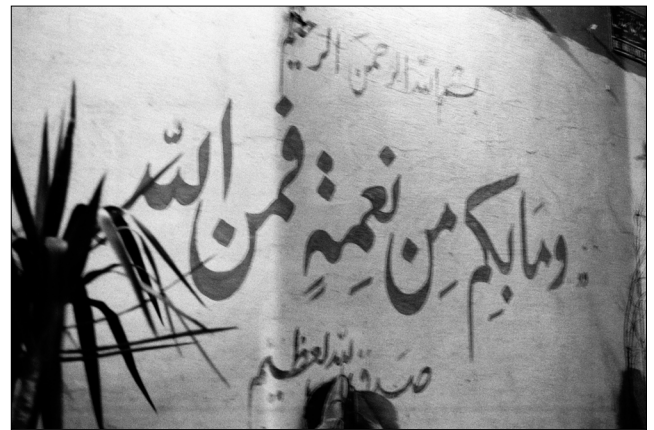 بسم الله الرحمن الرحيم
وَمَا بِكُم مِن نعِمةٍ فمن اللّه
صَدق اللّه العظيم